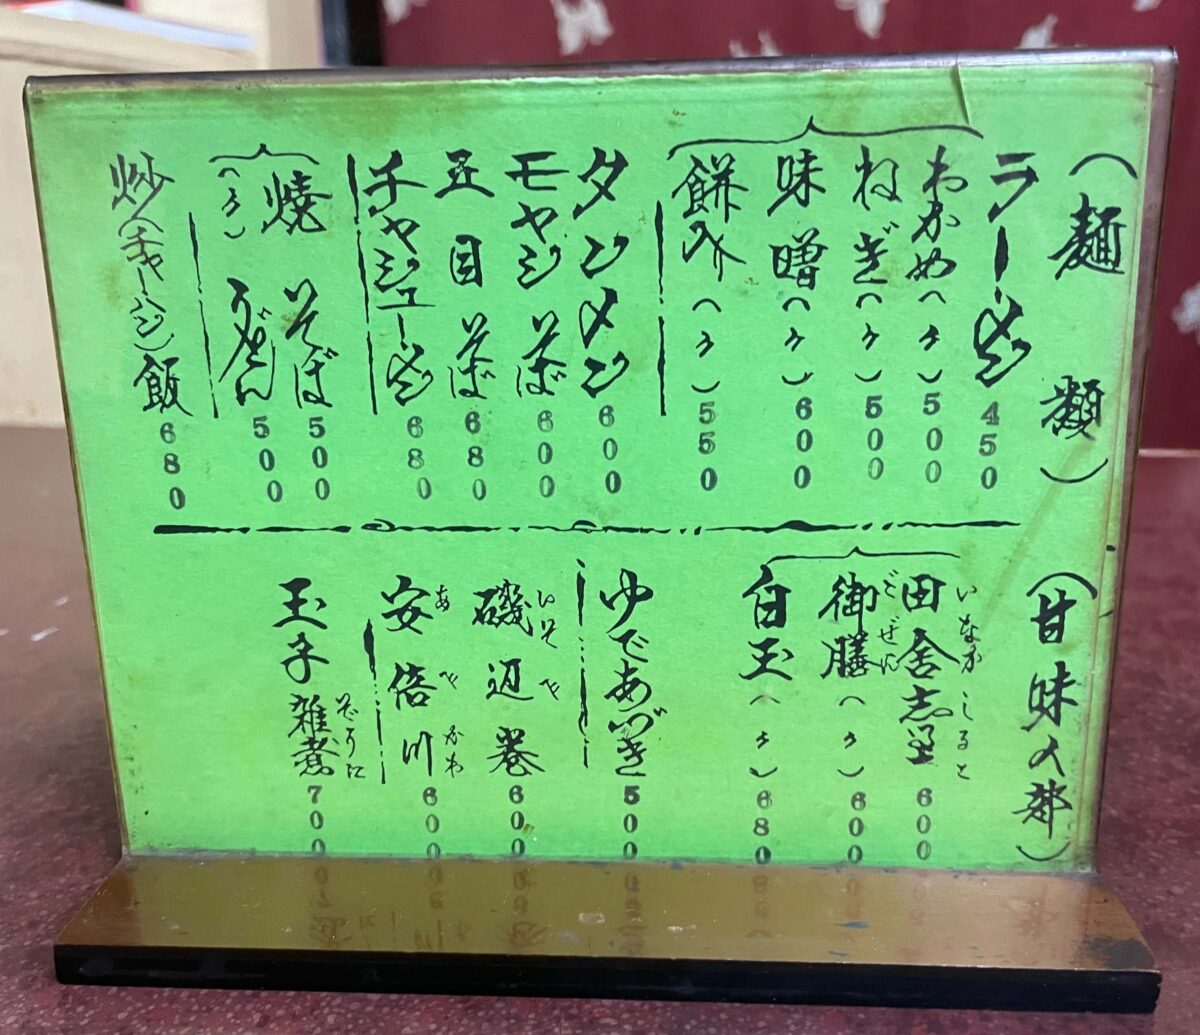 (麺類)
ラーメン 450
わかめ(〃) 500
ねぎ(〃) 500
味噌(〃) 600
餅入(〃) 550
タンメン 600
モヤシそば 600
五目そば 680
チャシューメン 680
焼そば 500
(〃)うどん 500
炒(チャーハン)飯 680
(甘味の部)
田舎志る古 いなかしるこ 600
御膳(〃) ごぜん 600
白玉(〃) 680
ゆであづき 500
磯辺巻 いそべ 600
安倍川 あべかわ 600
玉子雑煮 ぞうに 700